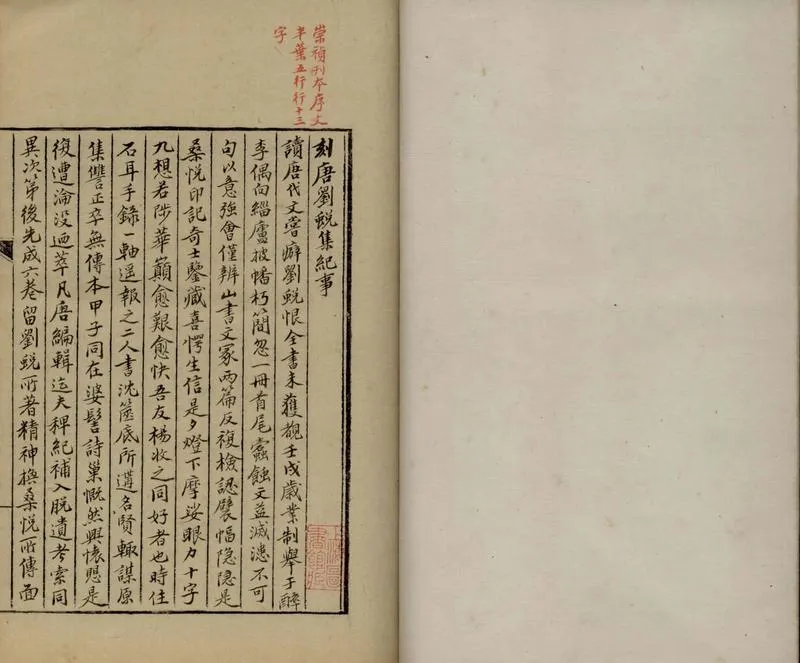 崇禎刊本序文
半葉五行行十三
字
刻唐劉蛻集紀事
讀唐代文嘗癖劉蛻恨全書未獲覩壬戌歲業制舉于醉
李偶向緇廬披幡朽簡忽一冊首尾蠧蝕文益滅漶不可
句以意強會僅辨山書文冢兩篇反複檢認襞幅隐隐是
桑悅印記奇士鑒藏喜愕生信是夕燈下摩娑眼力十字
九想若陟華巔愈艱愈快吾友楊收之同好者也時住
石耳手錄一軸遥報之二人書沈篋底所遘名賢輙謀原
集讐正卒無傳本甲子同在婆髻詩巢慨然興懷懸是
復遭淪没迺萃凡唐編輯迄夫稗紀補入脱遺考索同
異次第後先成六卷留劉蛻所著精神撫桑悅所傳面